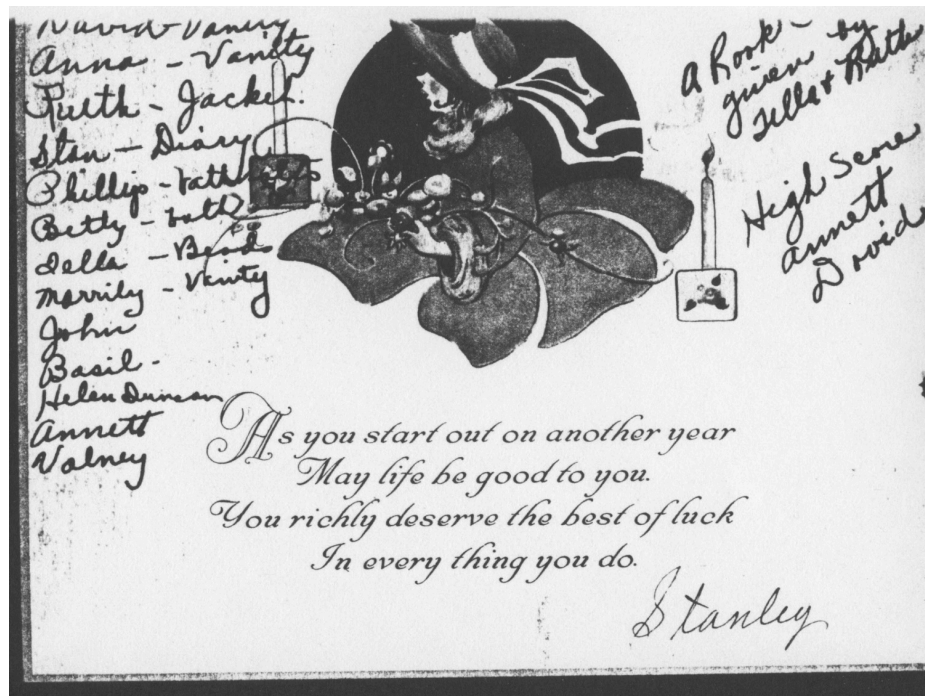 David - Vanity
Anna - Vanity
Ruth - Jacket.
Stan - Diary
Phillip - bath
Betty - bath
Della - Beads
Marrily - Vanity
John
Basil -
Helen Duncan
Annett
Valney
A Book
given by
Della & Ruth
High Score
Annett
David
As you start out on another year
May life be good to you.
You richly deserve the best of luck
In every thing you do.
Stanley